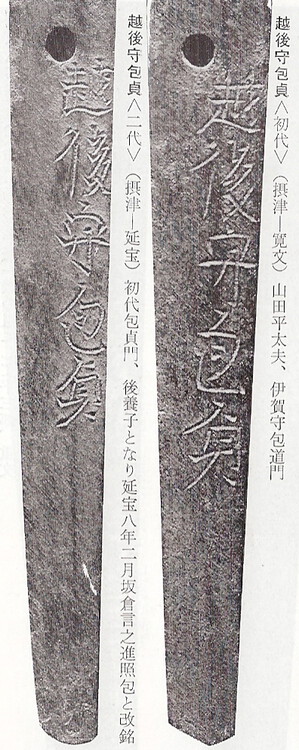 越後守包貞＜初代＞（摂津―寛文）山田平太夫、伊賀守包道門
越後守包貞
越後守包貞＜二代＞（摂津―延宝）初代包貞門、後養子となり延宝八年二月坂倉言之進照包と改銘
越後守包貞